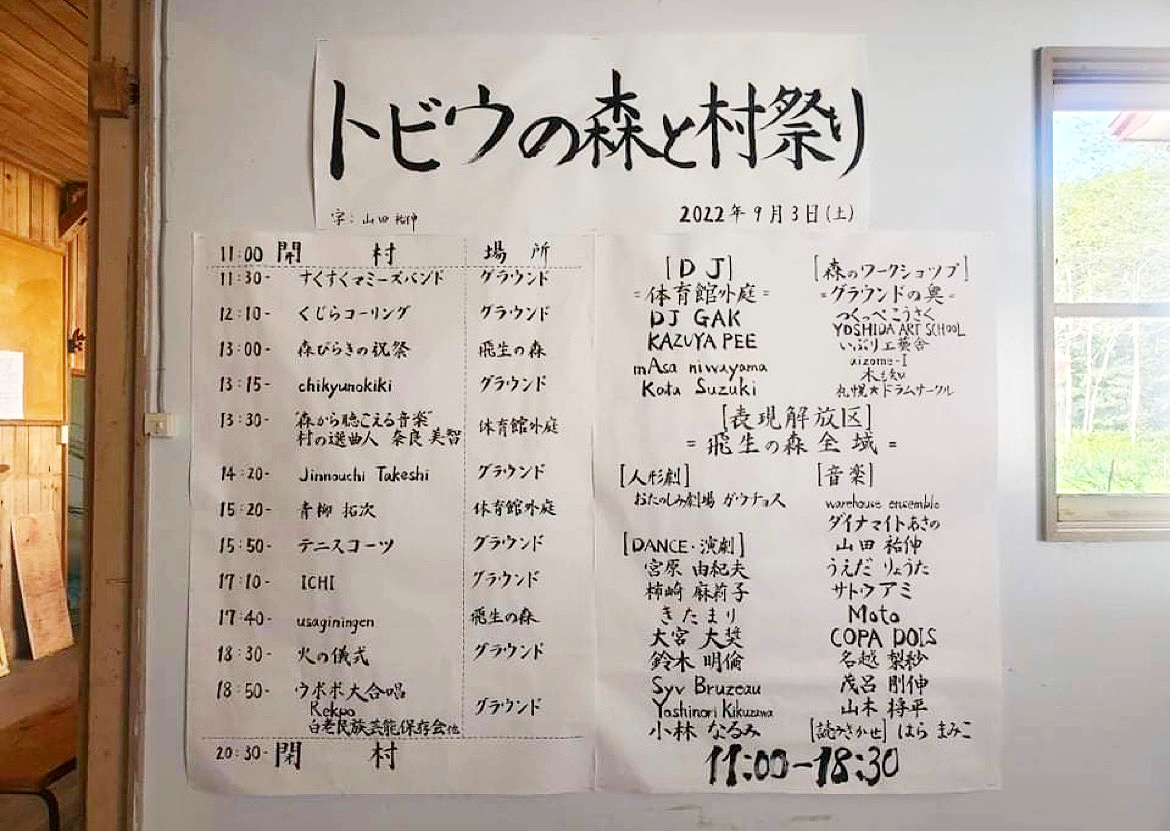 トビウの森と村祭り
字：山田 祐伸
2022年9月3日(土)
11:00 開 村 場 所
11:30- すくすくマミーズバンド グラウンド
12:10- くじらコーリング グラウンド
13:00- 森びらきの祝祭 飛生の森
13:15- chikyunokiki グラウンド
13:30- "森から聴こえる音楽"
村の選曲人 奈良 美智 体育館外庭
14:20- Jinnouchi Takeshi グラウンド
15:20- 青柳 拓次 体育館外庭
15:50- テニスコーツ グラウンド
17:10- ICHI グラウンド
17:40- usaginingen 飛生の森
18:30- 火の儀式 グラウンド
18:50- ウポポ大合唱 グラウンド
Rekpo
白老民族芸能保存会他
20:30- 閉 村
[DJ]
=体育館外庭=
DJ GAK
KAZUYA PEE
mAsa niwayama
Kota Suzuki
[森のワークショップ]
=グラウンドの奥=
つくっぺこうさく
YOSHIDA ART SCHOOL
いぶり工藝舎
aizome-I
札幌★ドラムサークル
[表現解放区]
=飛生の森全域=
[人形劇]
おたのしみ劇場 ガウチョス
[DANCE・演劇]
宮原 由紀夫
柿崎 麻莉子
きたまり
大宮 大奨
鈴木 明倫
Syv Bruzeau
Yoshinori Kikuzawa
小林 なるみ
[音楽]
warehouse ensemble
ダイナマイトあさの
山田 祐伸
うえだ りょうた
サトウアミ
Moto
COPA DOIS
名越 梨紗
茂呂 剛伸
山木 将平
[読みきかせ] はら まみこ
11:00-18:30